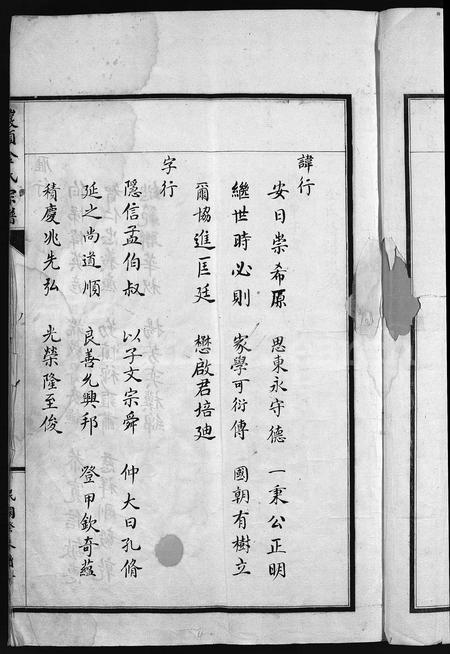 諱行
安日崇希原 思東永守德 一秉公正明
繼世時必則 家學可衍傳 國朝有樹立
爾協進匡廷 懋啟君培迪
字行
隱信孟伯叔 以子文宗舜 仲大曰孔脩
延之尚道順 良善允興邦 登甲欽奇蘊
積慶兆先弘 光榮隆至俊